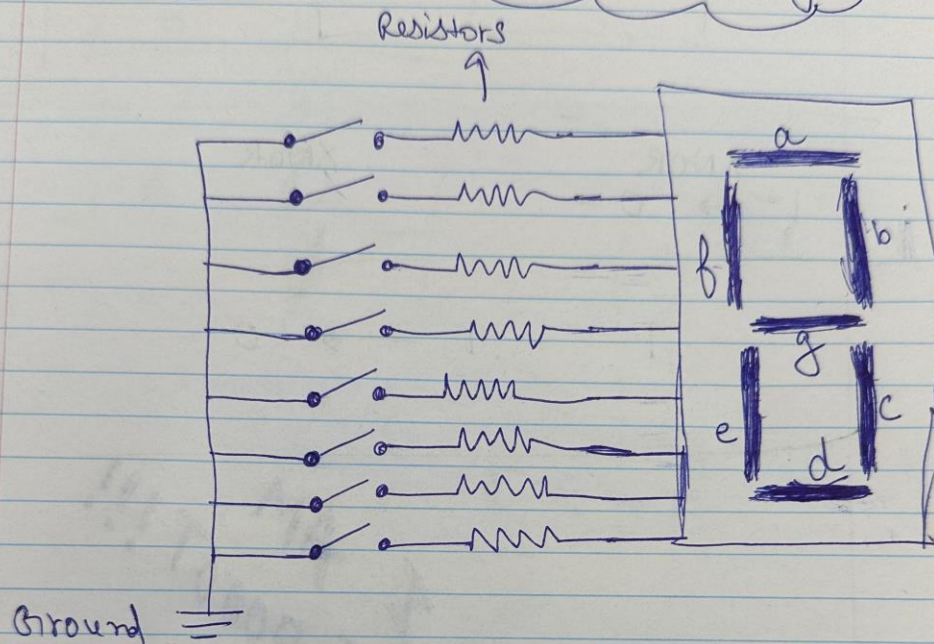 Resistors
a
b
f
g
e
c
d
Ground